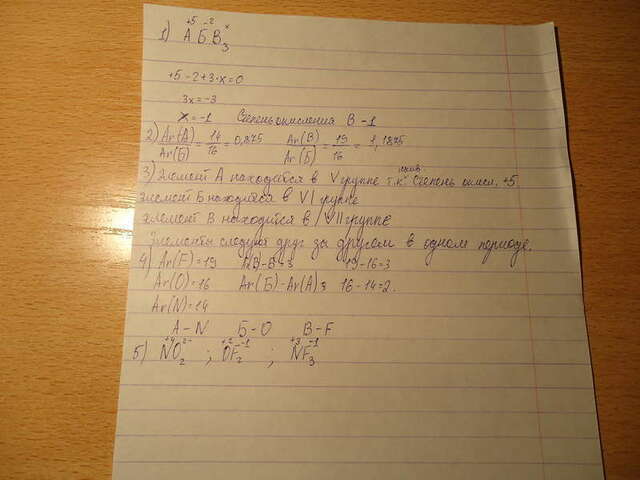 +5 -2 x
1) А Б В3
+5 - 2 + 3·x = 0
3x = -3
x = -1 Степень окисления В -1
2) Ar(А)/Ar(Б) = 14/16 = 0,875 Ar(В)/Ar(Б) = 19/16 = 1,1875
3) Элемент А находится в V группе т.к. степень окисл. +5
элемент Б находится в VI группе
элемент В находится в VII группе
Элементы следуют друг за другом в одном периоде.
4) Ar(F) = 19 19-16=3
Ar(O) = 16 Ar(Б) - Ar(А) 16 - 14 = 2.
Ar(N) = 14
А - N Б - О В - F
+4 2- +2 -1 +3 -1
5) NO2 ; OF2 ; NF3